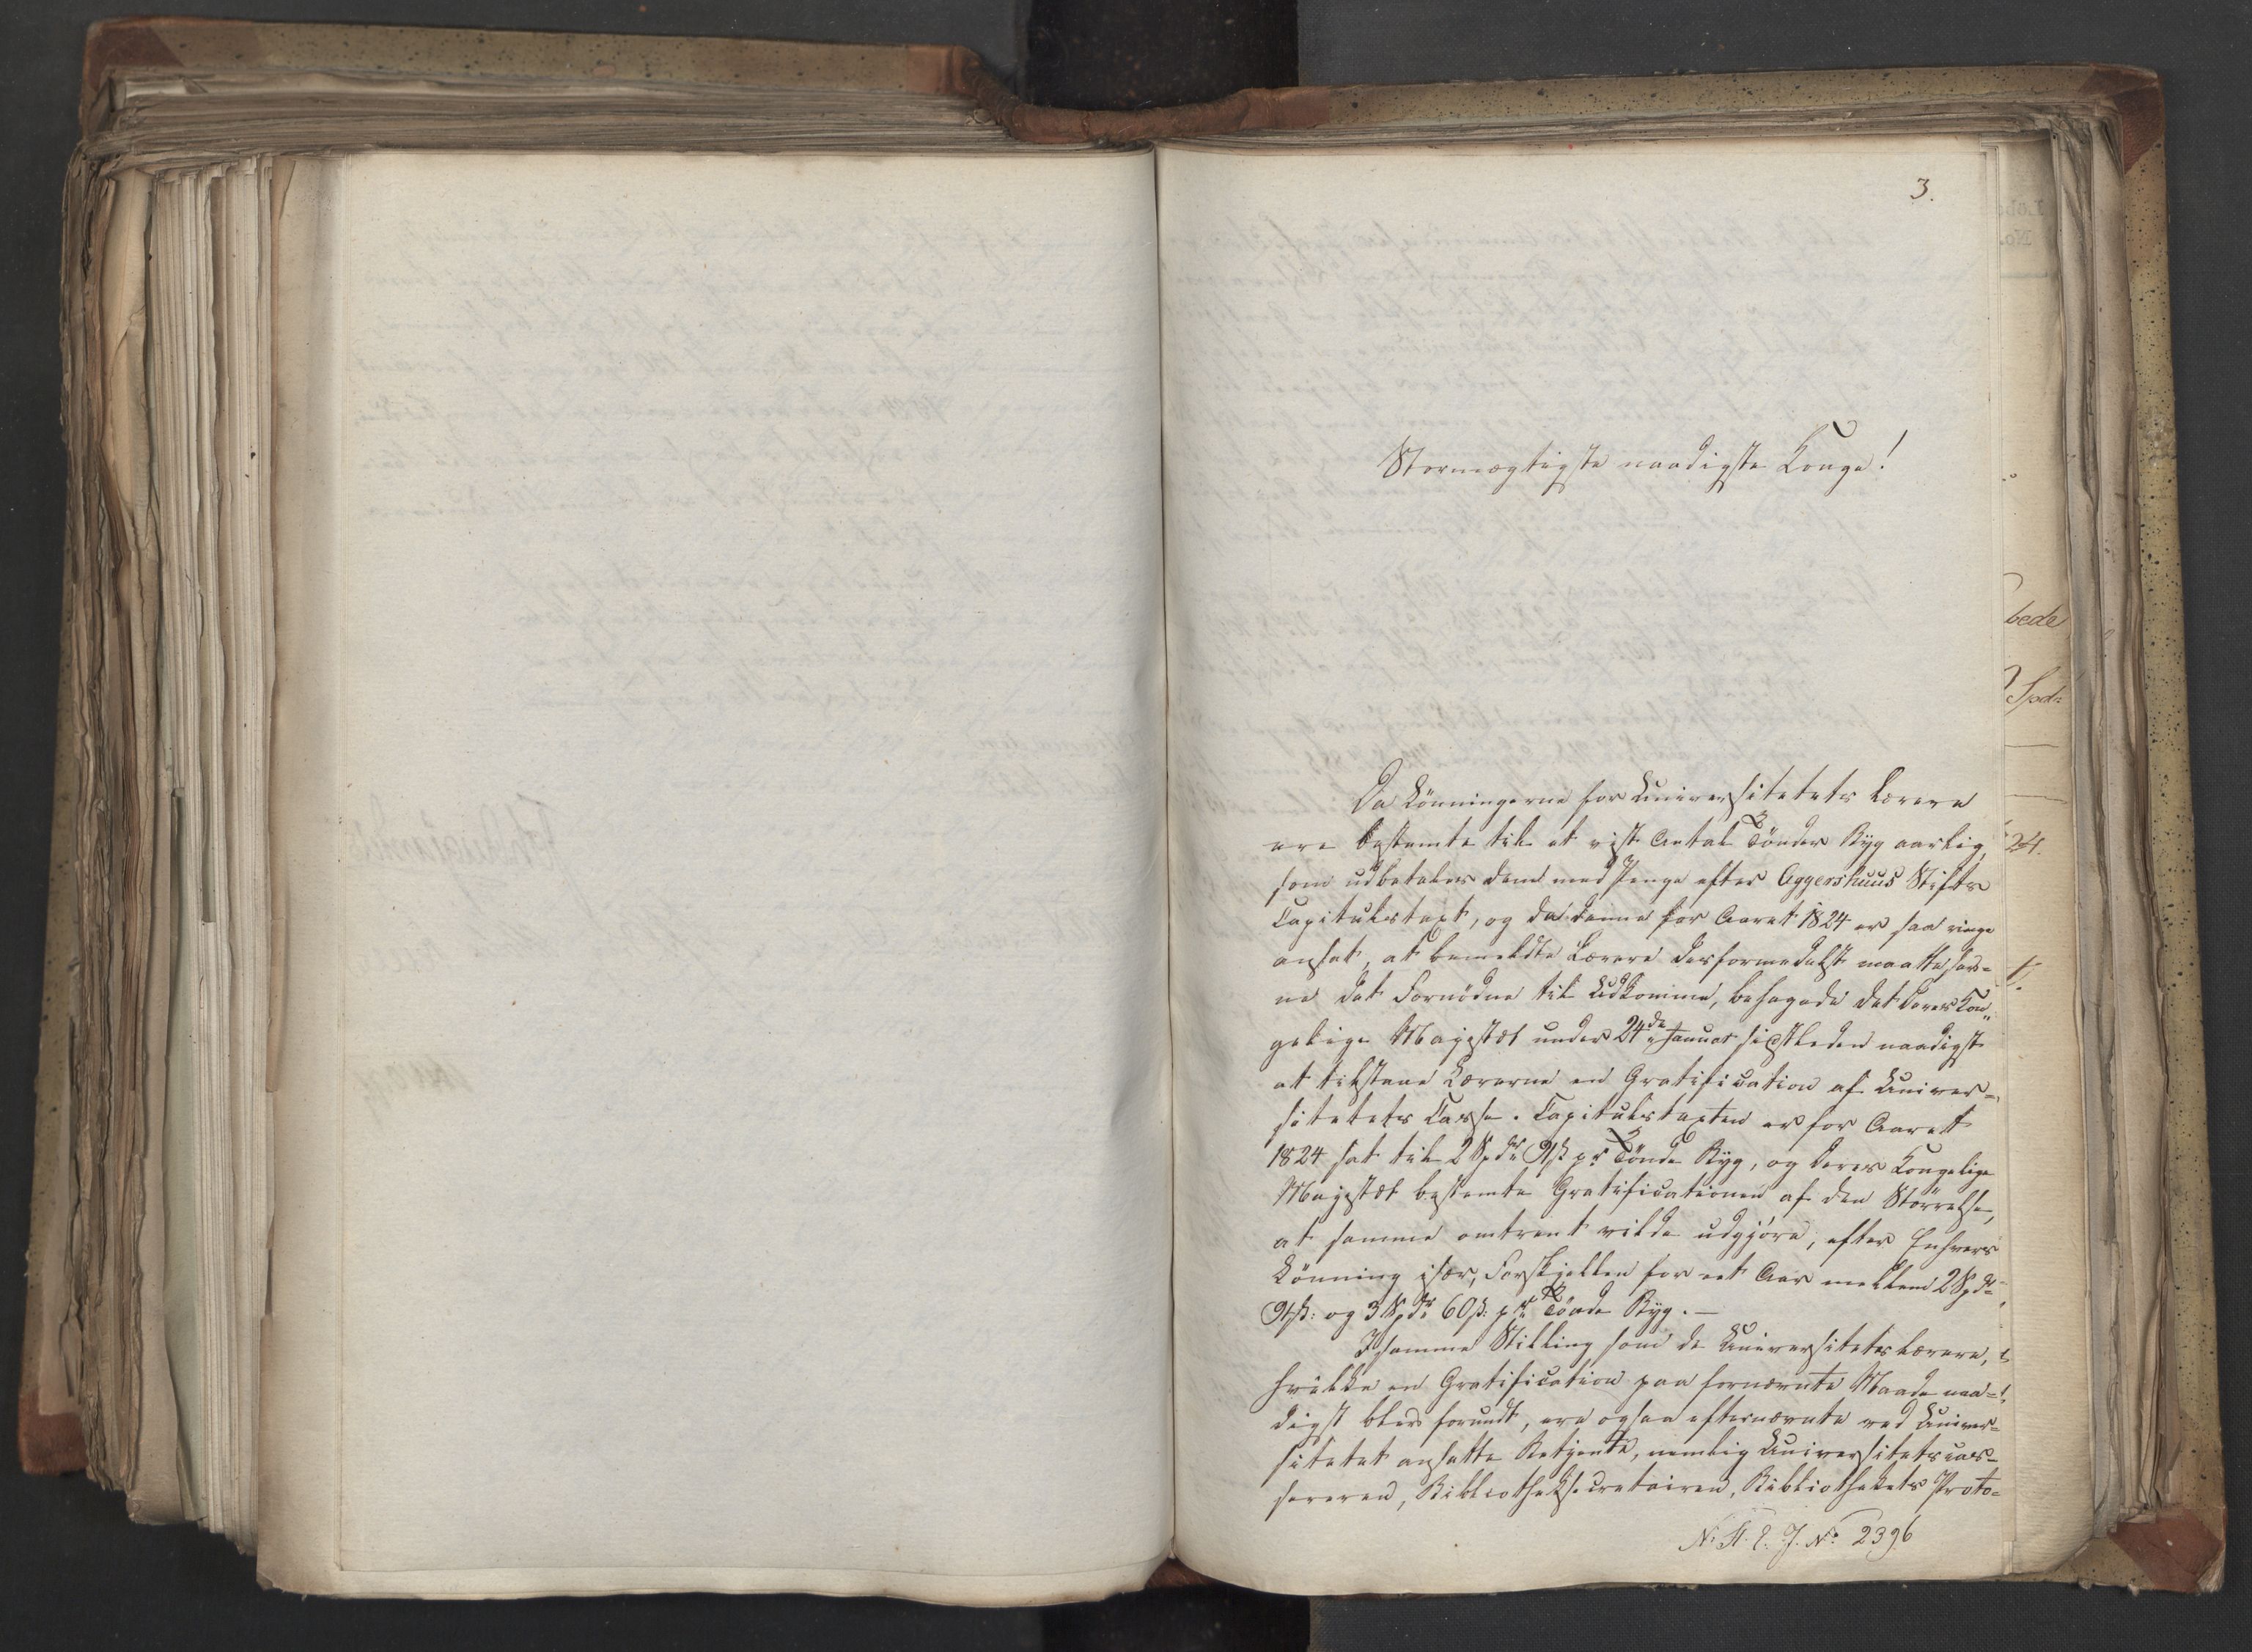 3.
Stormægtigste naadigste Konge!
Da Lönningerne for Universitetets Lærere
ere bestemte til et vist Antal Tönder Byg aarlig,
som udbetales dem med Penge efter Aggershuus Stifts
Capitulstaxt, og da denne for Aaret 1824 er saa ringe
ansat, at bemeldte Lærere desformedelst maatte sav=
ne det Fornödne til Udkomme, behagede det Deres Kon„
gelige Majestæt under 24de Januar sidstleden naadigst
at tilstaae Lærerne en Gratification af Univer=
sitetets Casse. Capitulstaxten er for Aaret
1824 sat til 2 Spdr 9ß pr Tönde Byg, og Deres Kongelige
Majestæt bestemte Gratificationen af den Störrelse,
at samme omtrent vilde udgjöre, efter Enhvers
Lönning især, Forskjellen for eet Aar mellem 2 Spdr
9ß: og 3 Spdr 60ß: pr Tönde Byg. —
I samme Stilling som de Universitetslærere,
hvilke en Gratification paa fornævnte Maade naa=
digst blev forundt, ere ogsaa efternævnte ved Univer=
sitetet ansatte Betjente, nemlig Universitetscas=
sereren, Bibliotheksecretairen, Bibliothekets Proto=
N. St. E. J. No 2396
bede
Spd:
24.